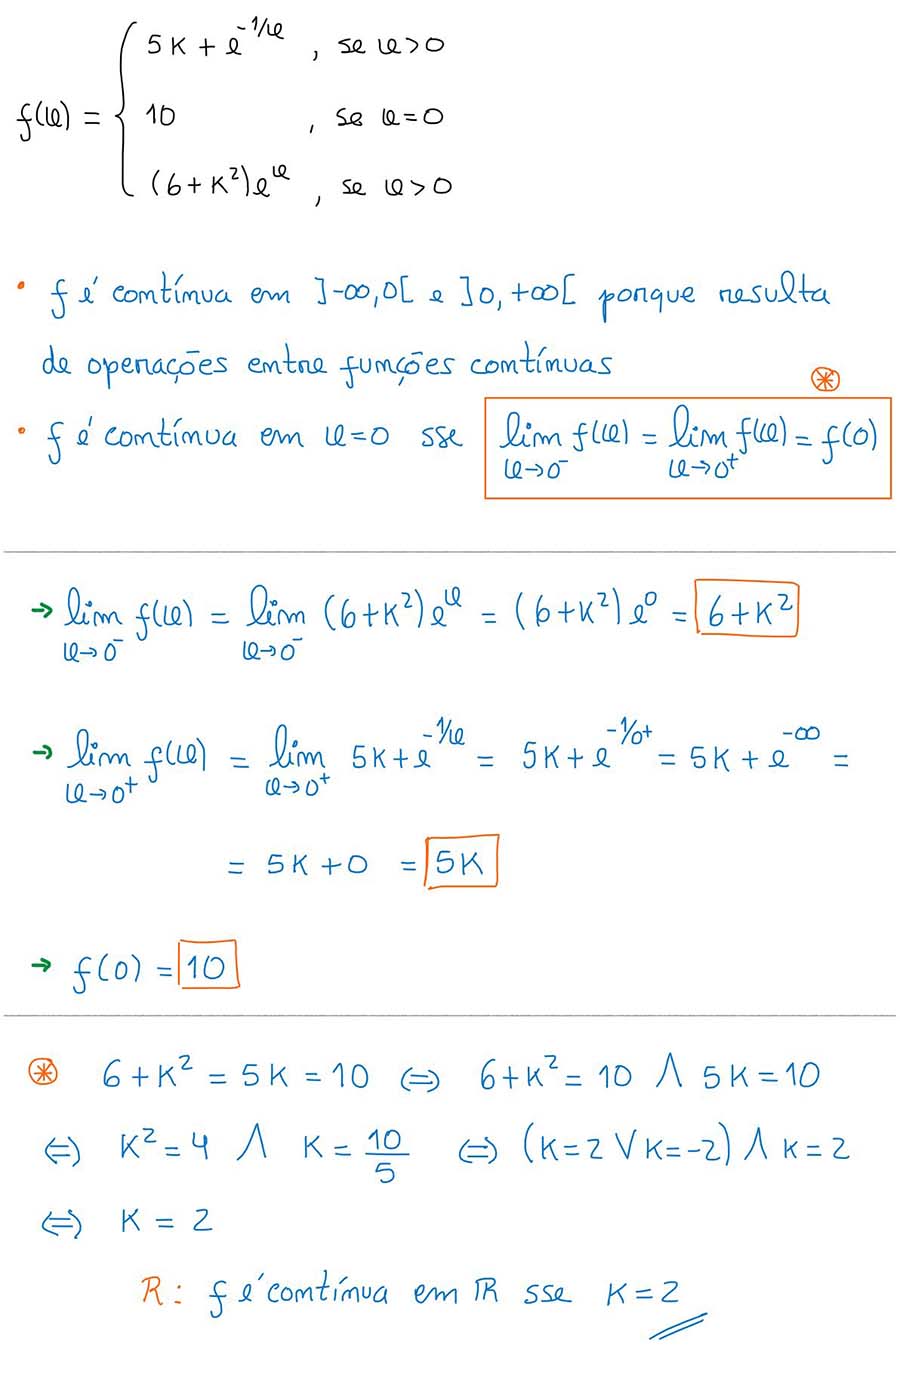 f(x) = { 5K + e^{-1/x} , se x>0
10 , se x=0
(6+K²)e^x , se x>0
• f é contínua em ]-∞,0[ e ]0,+∞[ porque resulta
de operações entre funções contínuas
⊛
• f é contínua em x=0 sse lim_{x→0⁻} f(x) = lim_{x→0⁺} f(x) = f(0)
→ lim_{x→0⁻} f(x) = lim_{x→0⁻} (6+K²)e^x = (6+K²)e^0 = 6+K²
→ lim_{x→0⁺} f(x) = lim_{x→0⁺} 5K+e^{-1/x} = 5K+e^{-1/0+} = 5K+e^{-∞} =
= 5K+0 = 5K
→ f(0) = 10
⊛ 6+K² = 5K = 10 ⇔ 6+K² = 10 ∧ 5K = 10
⇔ K² = 4 ∧ K = 10/5 ⇔ (K=2 ∨ K=-2) ∧ K=2
⇔ K = 2
R: f é contínua em ℝ sse K=2